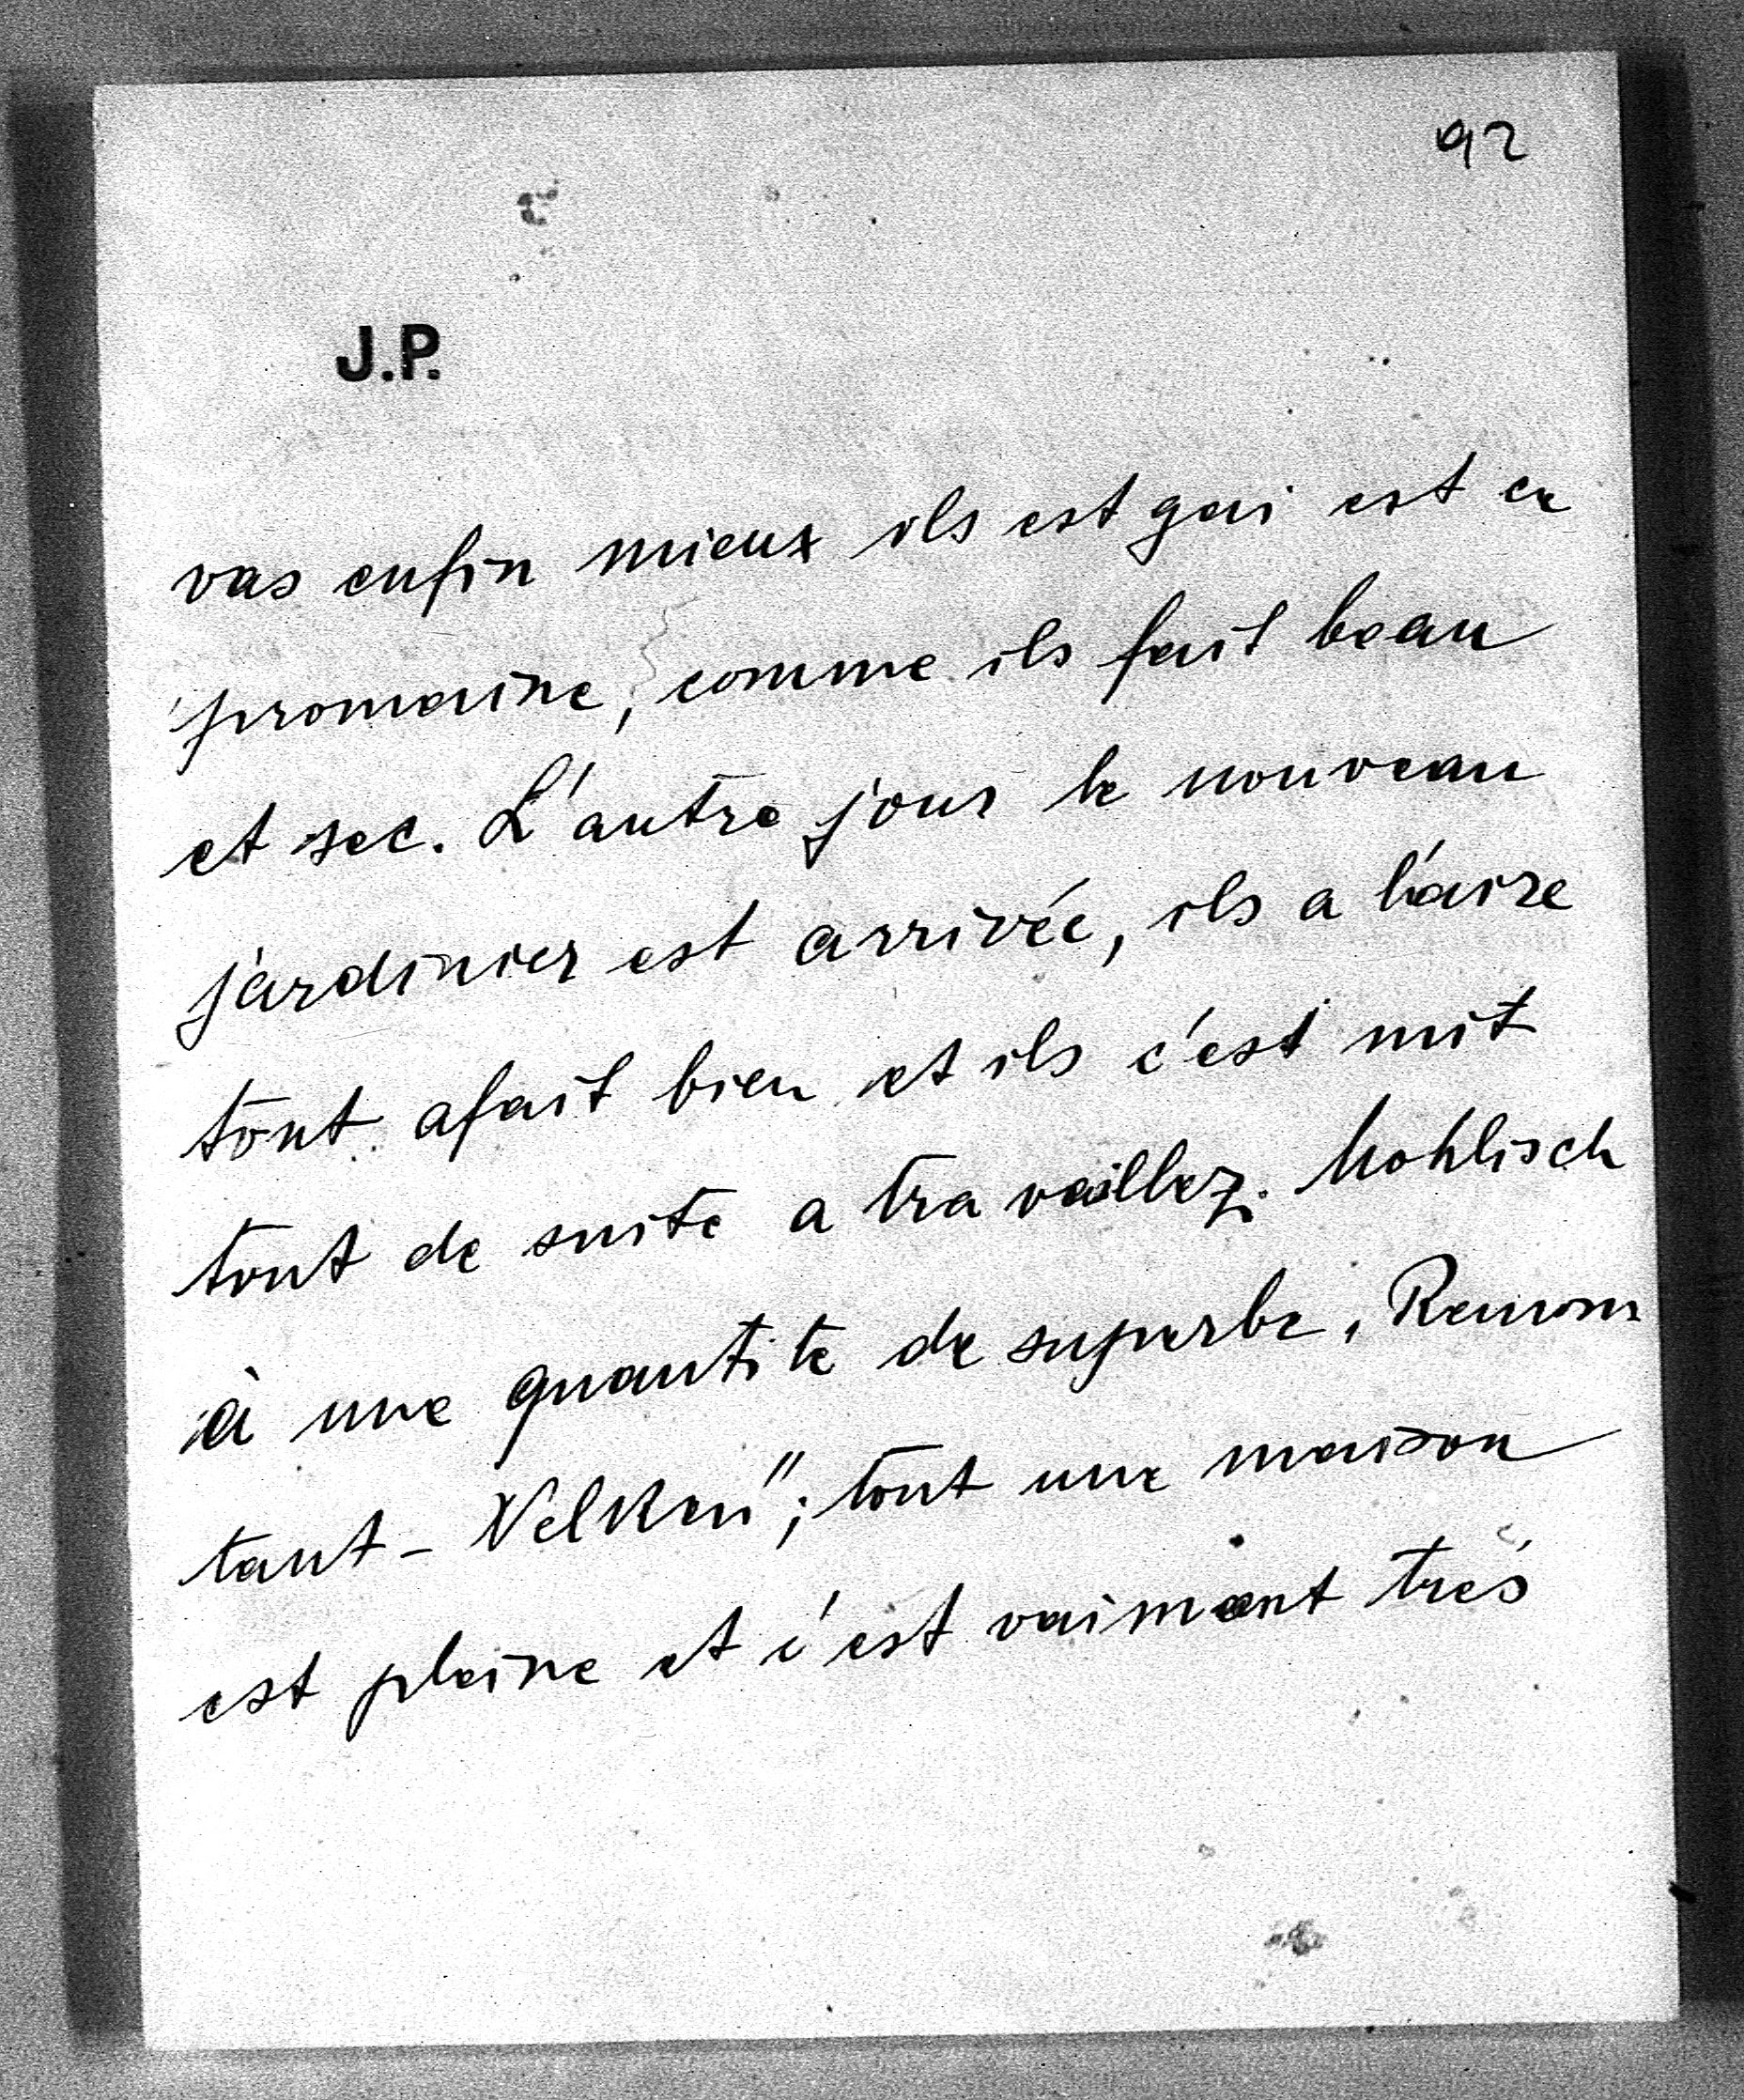 92
J.P.
vas enfin mieux ils est gai est ce
promaine, comme ils fait beau
et sec. L'autre jour le nouveau
jardinier est arrivée, ils a l'aire
tout afait bien et ils c'est mit
tout de suite a travaillez. Mohlisch
à une quantite de superbe, Remon
tant - Nelken"; tout une maison
est pleine et c'est vaimant trés